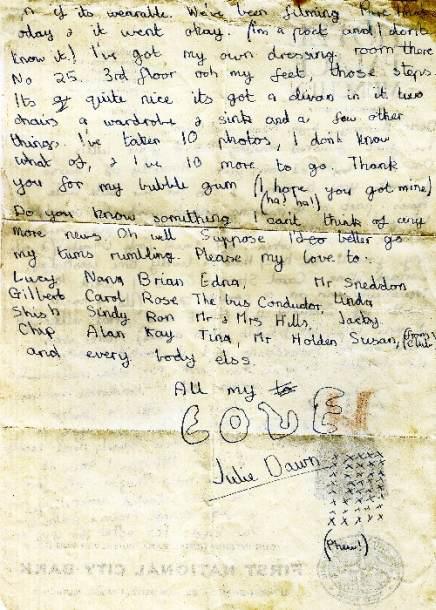 of its wearable. We've been filming
oday & it went okay. (I'm a poet and I dont
know it!) I've got my own dressing room there
No 25. 3rd floor ooh my feet, those steps.
Its quite nice its got a divan in it two
chairs a wardrobe & sink and a few other
things. I've taken 10 photos, I dont know
what of, & I've 10 more to go. Thank
you for my bubble gum (I hope you got mine)
(ha! ha!)
Do you know something I cant think of any
more news. Oh well Suppose I'd better go
my tums rumbling. Please my love to:
Lucy Nana Brian Edna, Mr Sneddon
Gilbert Carol Rose The bus Conductor, Linda
Shish Sindy Ron Mr & Mrs Hills, Jacky
Chip Alan Kay Tina, Mr Holden Susan,
and every body else.
All my
LOVE
Julie Dawn
x x x x x
x x x x x
x x x x x
x x x x x
x x x x x
x x x x x
x x x x x
(Phew!)
FIRST NATIONAL CITY BANK